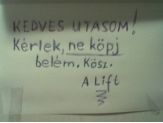 KEDVES UTASOM!
Kérlek, ne köpj
belém. Kösz.
A Lift